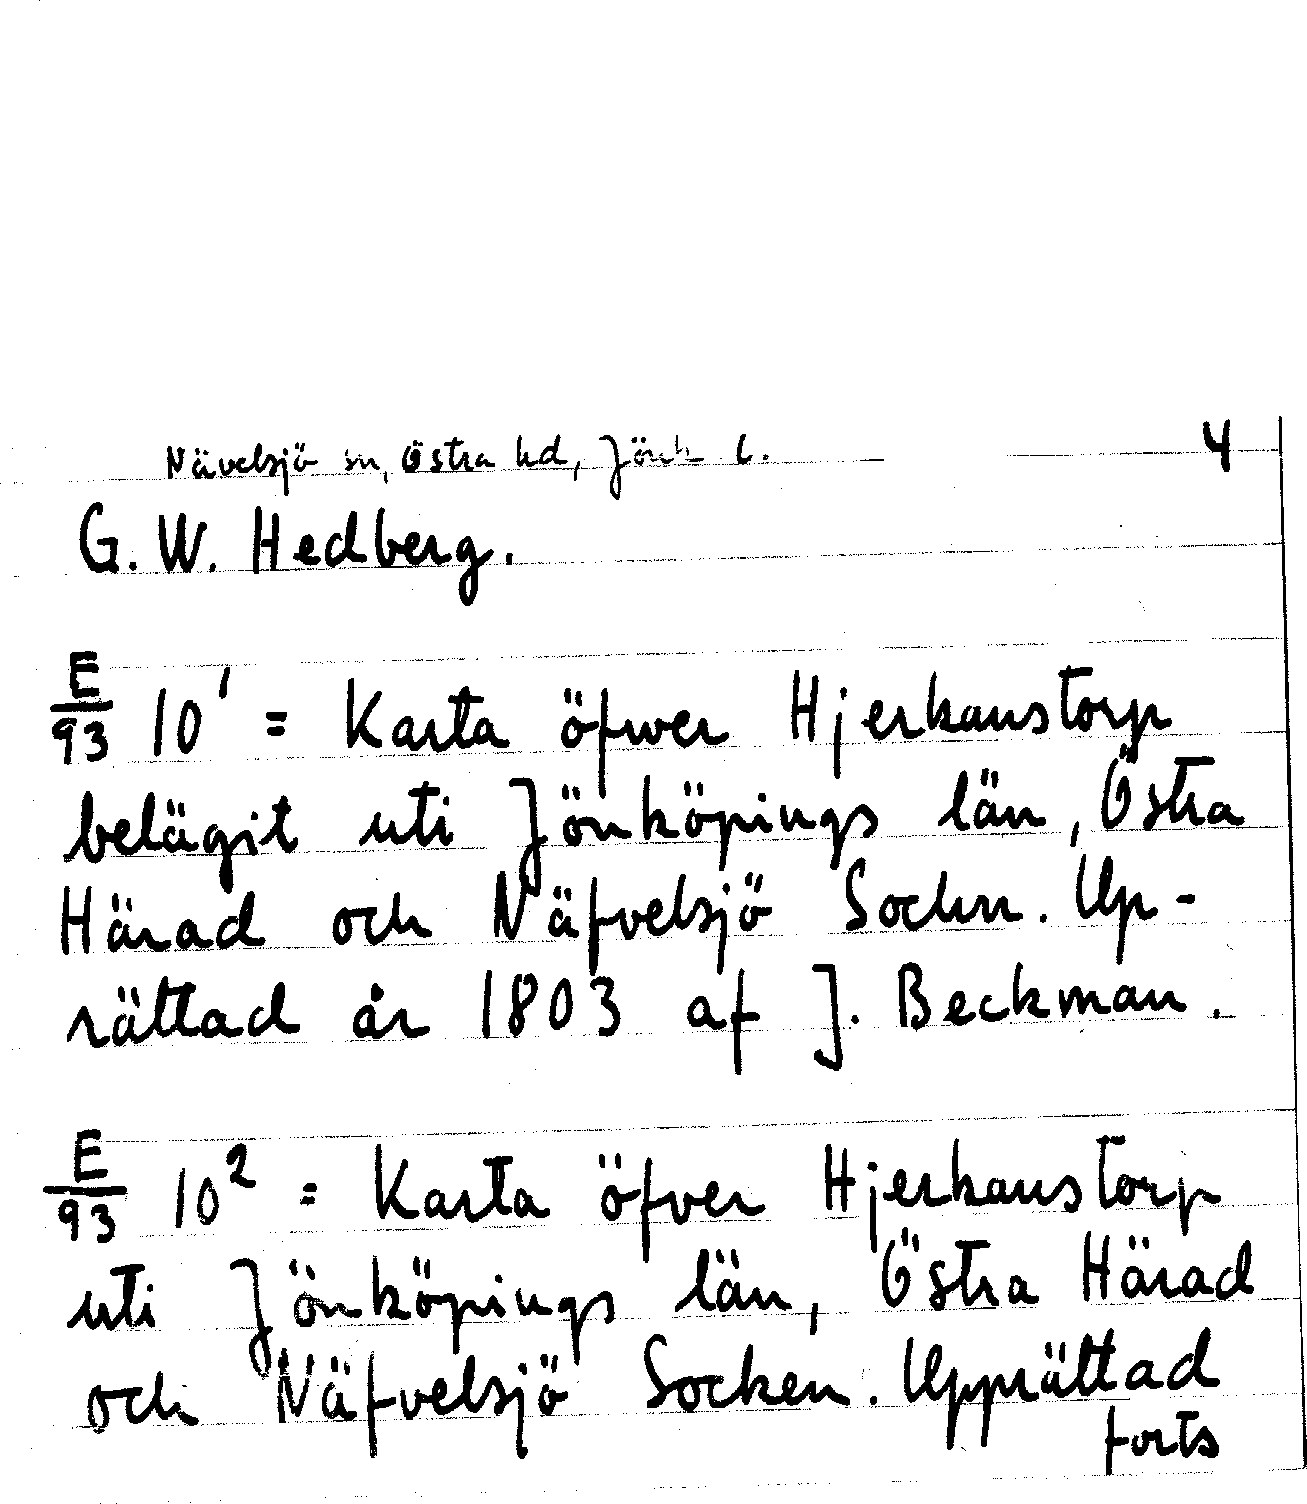 Nävelsjö sn, Östra hd, Jönk l. 4
G. W. Hedberg.
E/93 10¹ = Karta öfwer Hjerkanstorp
belägit uti Jönköpings län, Östra
Härad och Näfvelsjö Sockn. Up-
rättad år 1803 af J. Beckman.
E/93 10² = Karta öfver Hjerkanstorp
uti Jönköpings län, Östra Härad
och Näfvelsjö Socken. Upprättad
forts